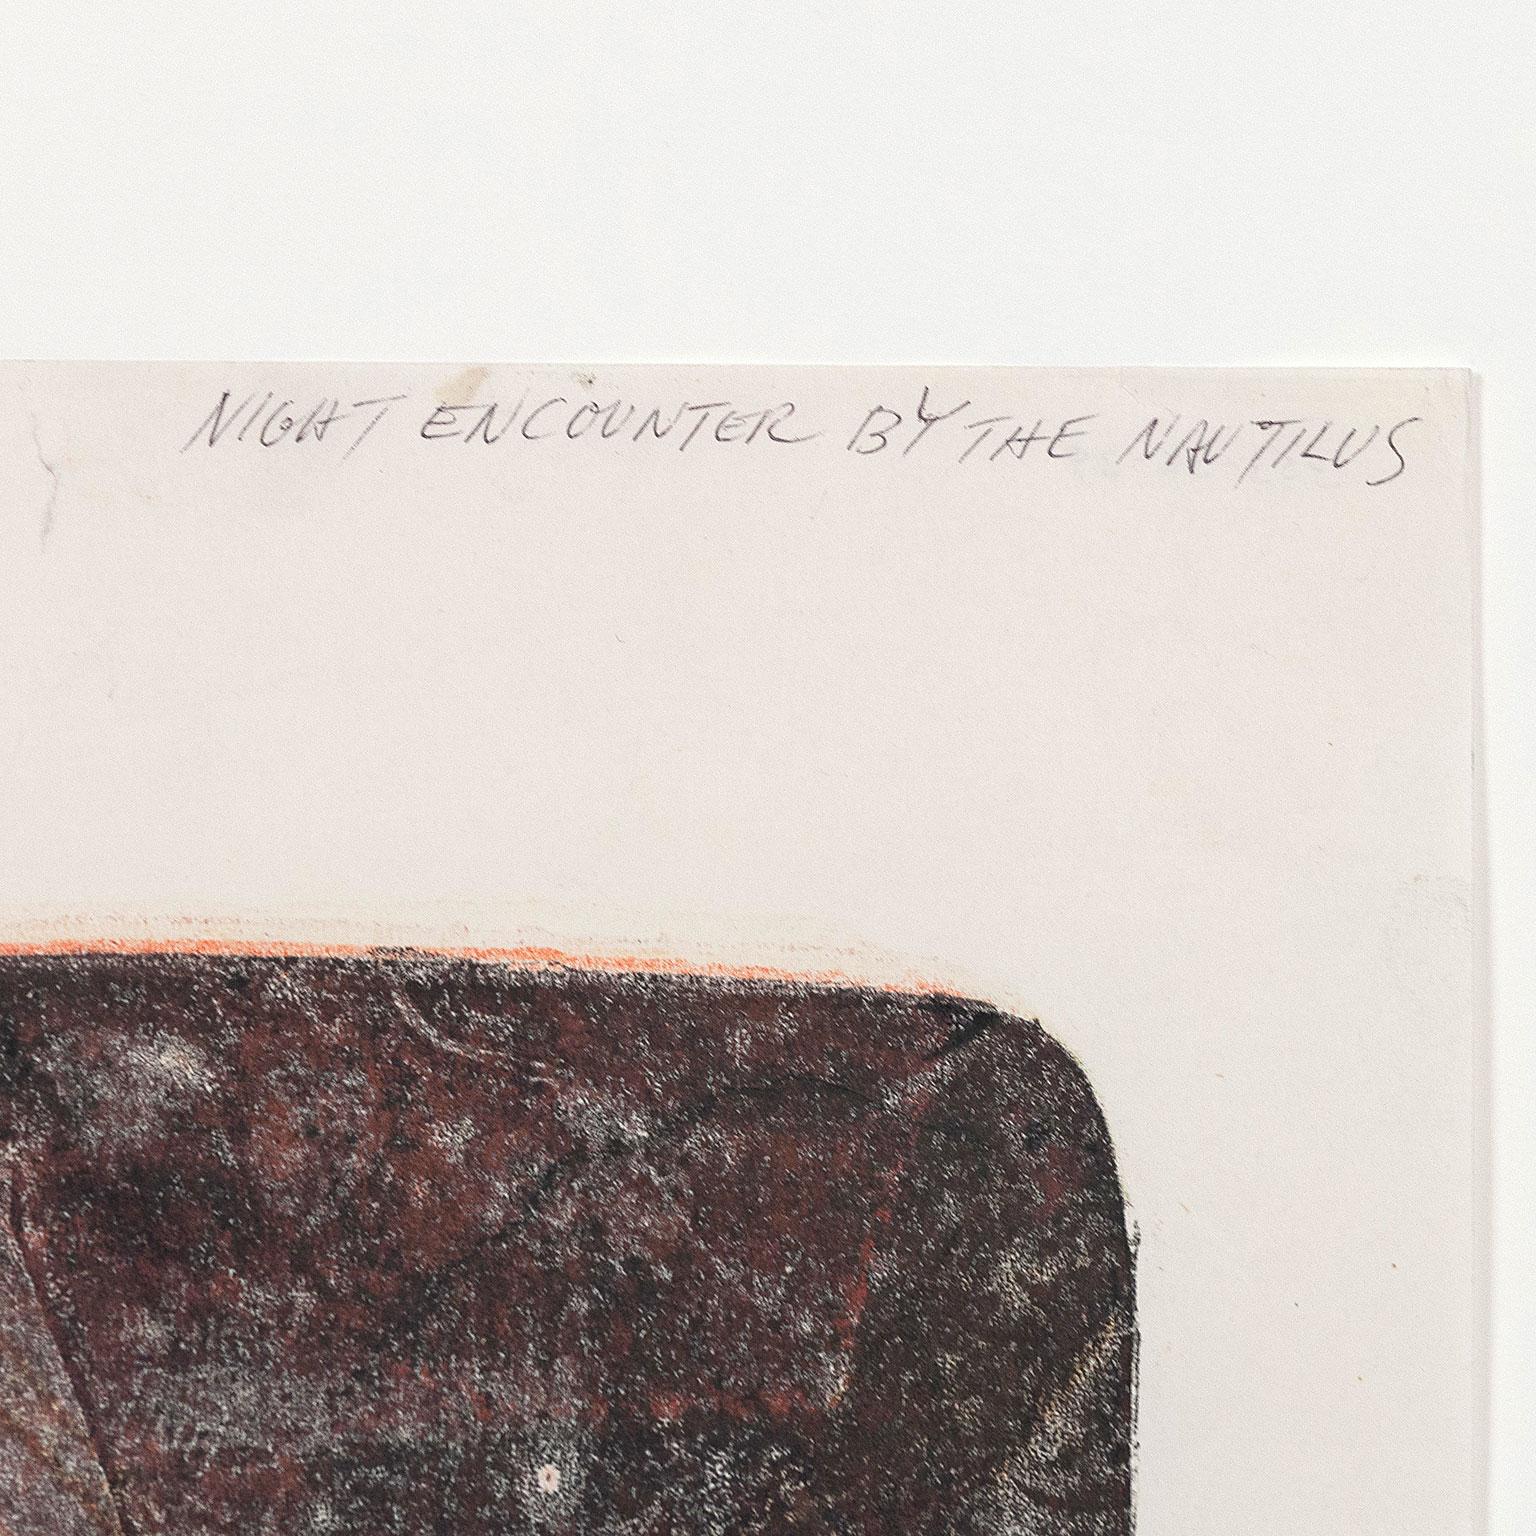 NIGHT ENCOUNTER BY THE NAUTILUS